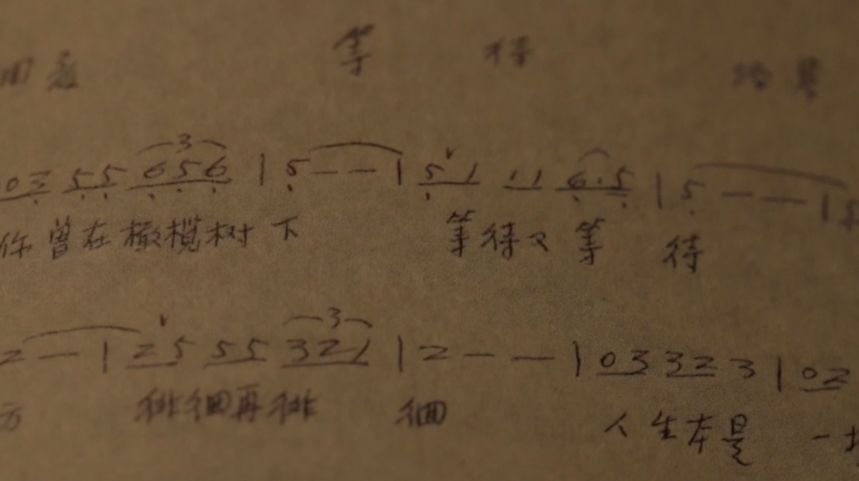 等 待
03 55 656 | 5 - - | 51 11 6·5 | 5 - - |
你曾在橄榄树下 等待又等 待
2 - | 25 55 321 | 2 - - | 03 32 3 | 02
方 徘徊再徘 徊 人生本是 一